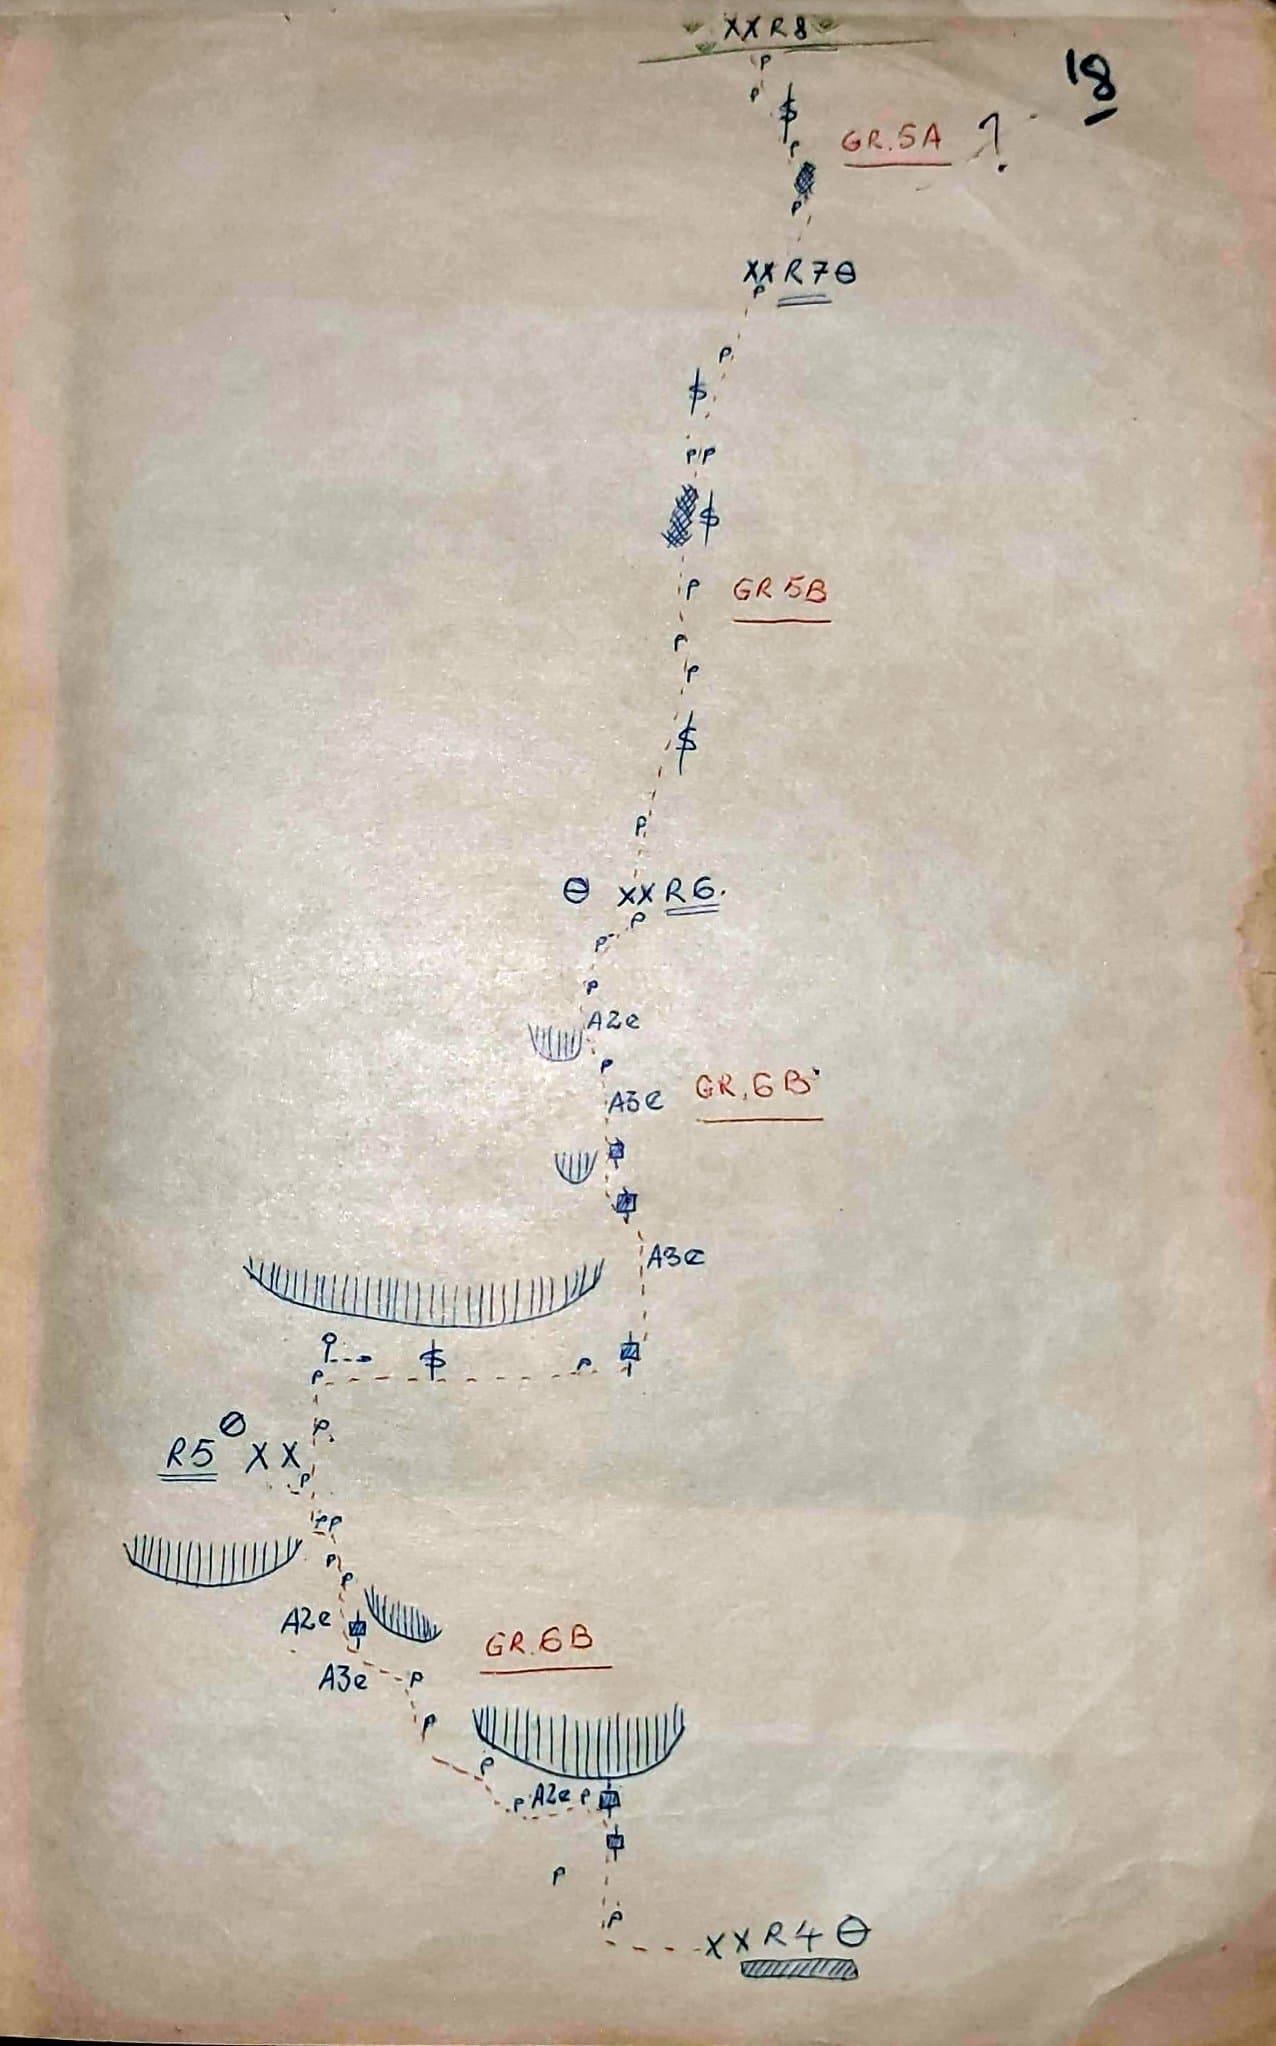 XX R8
18
P
P
$
GR. 5A ?
P
P
XX R7 θ
P
P
$
P P
$
P GR 5B
P
P
$
P
θ XX R6.
P
P
P
A2e
P
A3e GR. 6B
A3e
P
$
P
P
R5 θ XX
P
PP
P
P
A2e
GR. 6B
A3e P
P
P
P A2e P
P
P
XX R4 θ